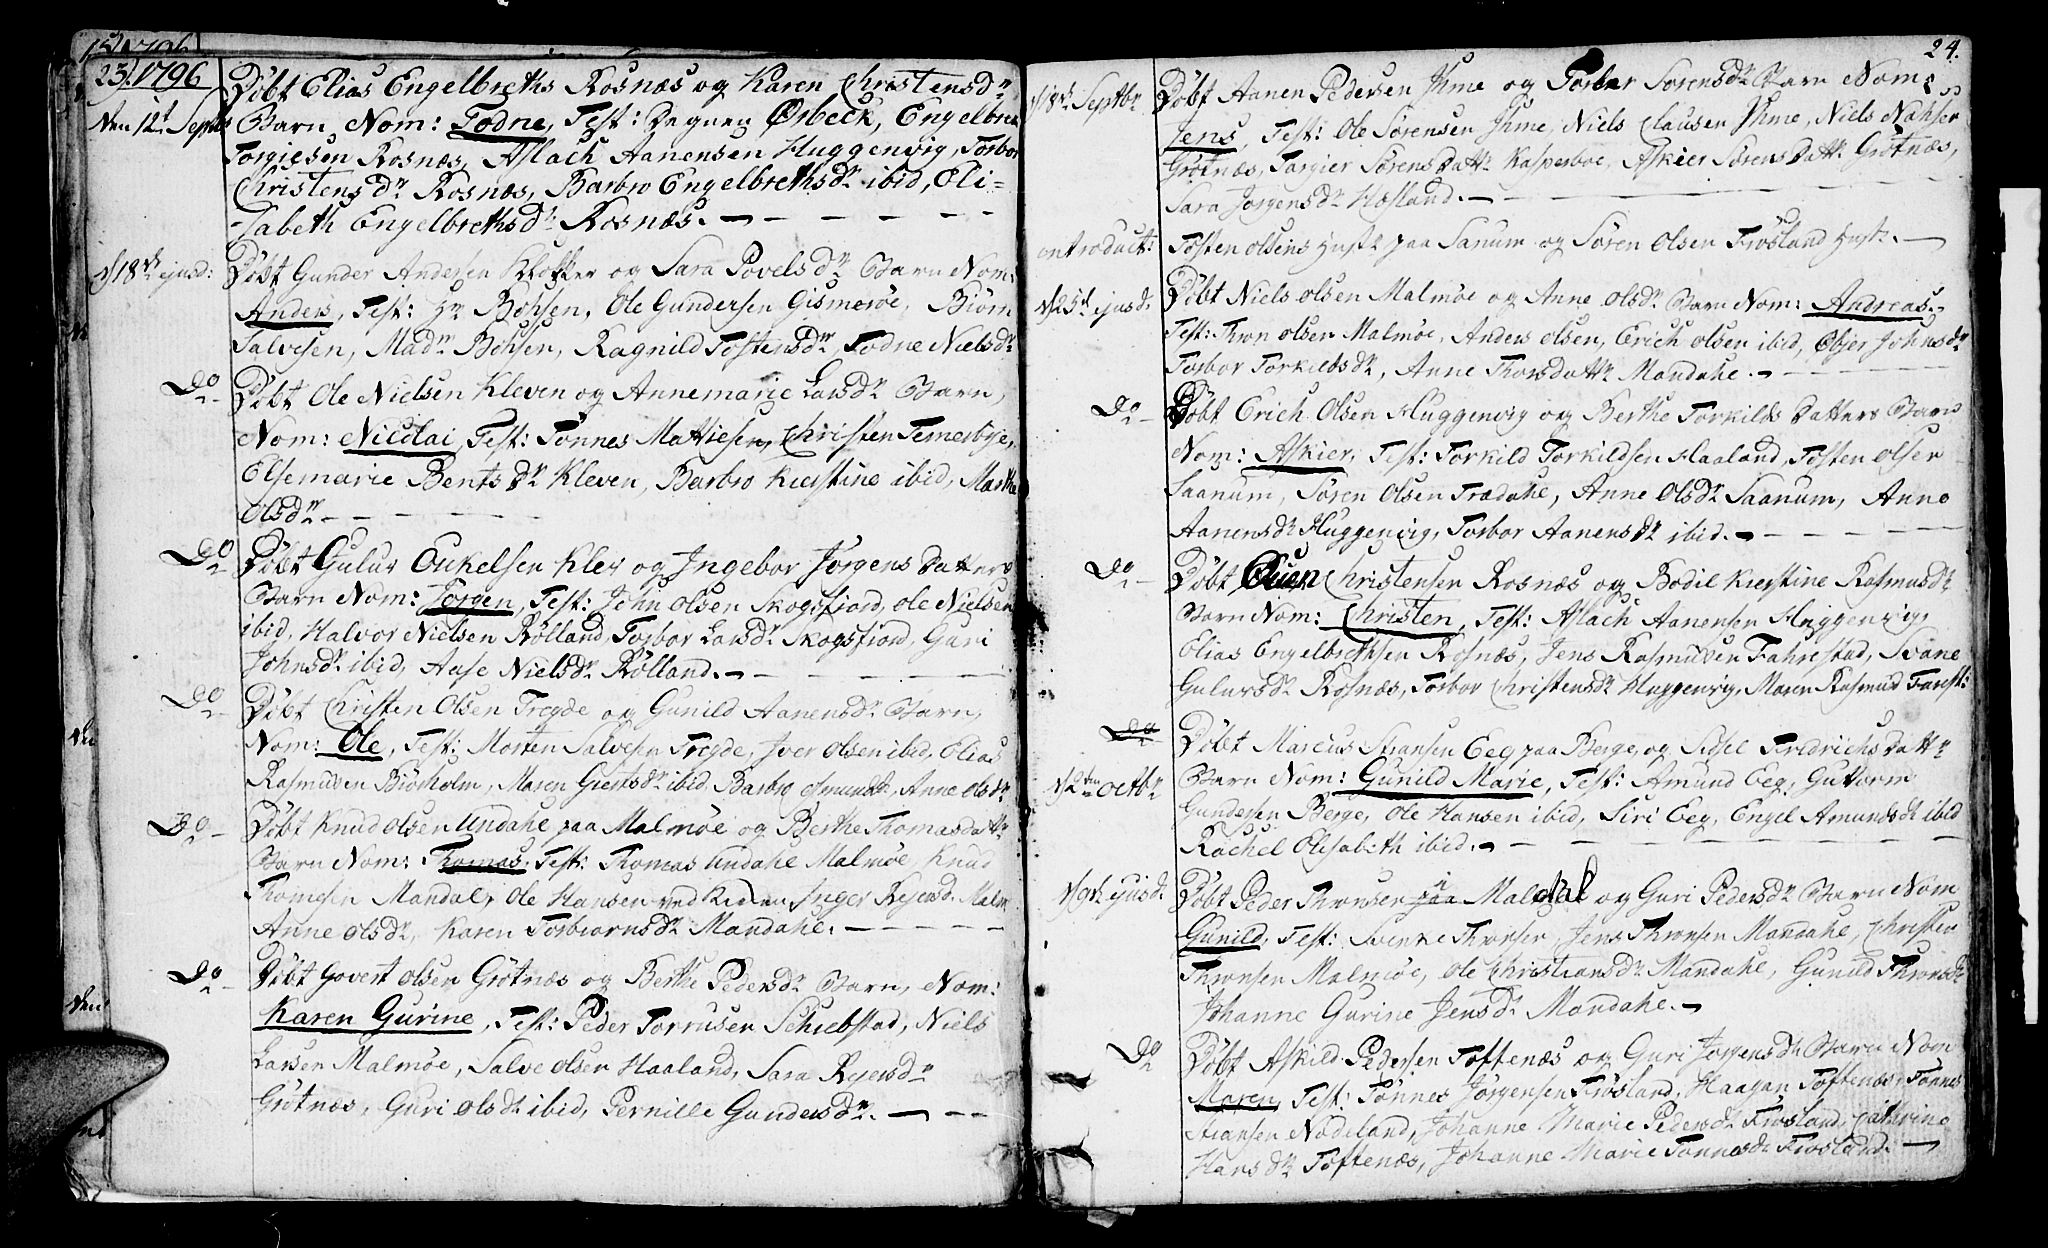 23. 1796
Døbt Elias Engelbreths Rosnæs og Karen Christensdr
den 12t Septbr Barn Nom: Todne, Test: Degnen Ørbeck, Engelbret
Torgiesen Rosnæs, Aslach Aanensen Huggenvig, Torbor
Christensdr Rosnæs, Barbro Engelbrethsdr ibid, Eli-
-sabeth Engelbrethsdr Rosnæs.
d 18de ejusd: Døbt Gunder Andersen Klokker og Sara Povelsdr Barn Nom:
Anders, Test: Hr Bohsen, Ole Gundersen Gismerøe, Biørn
Salvesen, Madm Bohsen, Ragnild Tostensdr, Todne Nielsdr
Do Døbt Ole Nielsen Kleven og Annemarie Larsdr Barn,
Nom: Nicolai, Test: Tønnes Mattiesen, Christen
Elsemarie Bentsdr Kleven, Barbro Kierstine ibid, Marthe
Olsdr
Do Døbt Gulur Onkelsen Klev og Ingebor Jørgens Datters
Barn Nom: Jørgen, Test: John Olsen Skogsfiord, Ole Nielsen
ibid, Halvor Nielsen Rølland, Torbor Larsdr Skogsfiord, Guri
Johnsdr ibid, Aase Nielsdr Rølland.
Do Døbt Christen Olsen Tregde og Gunild Aanensdr Barn,
Nom: Ole, Test: Morten Salvesen Tregde, Iver Olsen ibid, Elias
Rasmusen Biørholm, Maren ibid, Barbro Anne Olsdr
Do Døbt Knud Olsen Undahl paa Malmøe og Berthe Thomasdattr
Barn Nom: Thomas, Test: Thomas Undahl Malmøe, Knud
Thomesen Mandal, Ole Hansen ved Inger Reiersd. Malm
Anne Olsdr, Karen Torbiørnsdr Mandahl.
Do Døbt Govert Olsen Grøtnæs og Berthe Pedersdr Barn, Nom:
Karen Gurine, Test: Peder Torrusen Schiebstad, Niels
Larsen Malmøe, Salve Olsen Haaland, Sara Reiersdr
Grøtnæs, Guri Olsdr ibid, Pernille Gundersdr.
24.
d 18de Septbr Døbt Aanen Pedersen Ihme og Torbor Sørensdr Barn Nom:
Jens, Test: Ole Sørensen Ihme, Niels Clausen Ihme, Niels
Grøtnæs, Torgier Sørensdattr Kasperboe, Askier Sørensdattr Grøtnæs,
Sara Jørgensdr Hæsland.
introduct: Tosten Olsens Hust: paa Sanum og Søren Olsen Frøsland Hust:
d 25d ejusd: Døbt Niels Olsen Malmøe og Anne Olsdr Barn Nom: Andreas
Test: Thron Olsen Malmøe, Anders Olsen, Erich Olsen ibid, Johnsdr
Torbor Torkielsdr, Anne Thorsdattr Mandahl.
Do Døbt Erich Olsen Huggenvig og Berthe Torkilds Datters Barn
Nom: Askier, Test: Torkild Torkildsen Haaland, Tosten Olsen
Saanum, Søren Olsen Trædahl, Anne Olsdr Saanum, Anne
Aanensdr Huggenvig, Torbor Aanensdr ibid.
Do Døbt Ouen Christensen Rosnæs og Bodil Kierstine Rasmusdr
Barn Nom: Christen, Test: Aslach Aanensen Huggenvig,
Elias Engelbrethsen Rosnæs, Jens Rasmusen Fahrestad, Svane
Gulursdr Rosnæs, Torbor Christensdr Huggenvig, Maren Rasmusd Farest:
Do Døbt Marcus Stiansen Eeg paa Berge, og Sidsel Fredrichsdattr
d 2den Octbr Barn Nom: Gunild Marie, Test: Amund Eeg, Guttorm
Gundersen Berge, Ole Hansen ibid, Siri Eeg, Engel Amundsdr ibid
Rachel Elisabeth ibid.
d 9de ejusd: Døbt Peder Thronsen paa i Malmdal og Guri Pedersdr Barn Nom
Gunild, Test: Svenke Thronsen, Jens Thronsen Mandahl, Christen
Thronsen Malmøe, Ole Christiansdr Mandahl, Gunild Thronsdr
Johanne Gurine Jensdr Mandahl.
Do Døbt Askild Pedersen Toftenæs og Guri Jørgensdr Barn Nom
Maren, Test: Tønnes Jørgensen Frøsland, Haagen Toftenæs, Tønnes
Stiansen Nødeland, Johanne Marie Pedersdr Frøsland, Cathrine
Hansdr Toftenæs, Johanne Marie Tønnesdr Frøsland.